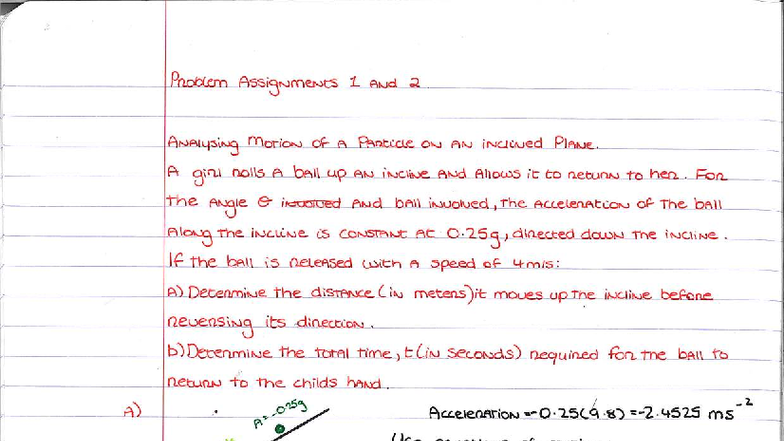 Problem Assignments 1 and 2
Analysing Motion of a Particle on an inclined Plane.
A girl rolls a ball up an incline and allows it to return to her. For
the angle θ involved and ball involved, the acceleration of the ball
along the incline is constant at 0.25g, directed down the incline.
If the ball is released with a speed of 4m/s:
a) Determine the distance (in meters) it moves up the incline before
reversing its direction.
b) Determine the total time, t (in seconds) required for the ball to
return to the childs hand.
A)
A = -0.25g
Acceleration = -0.25(9.8) = -2.4525 ms⁻²